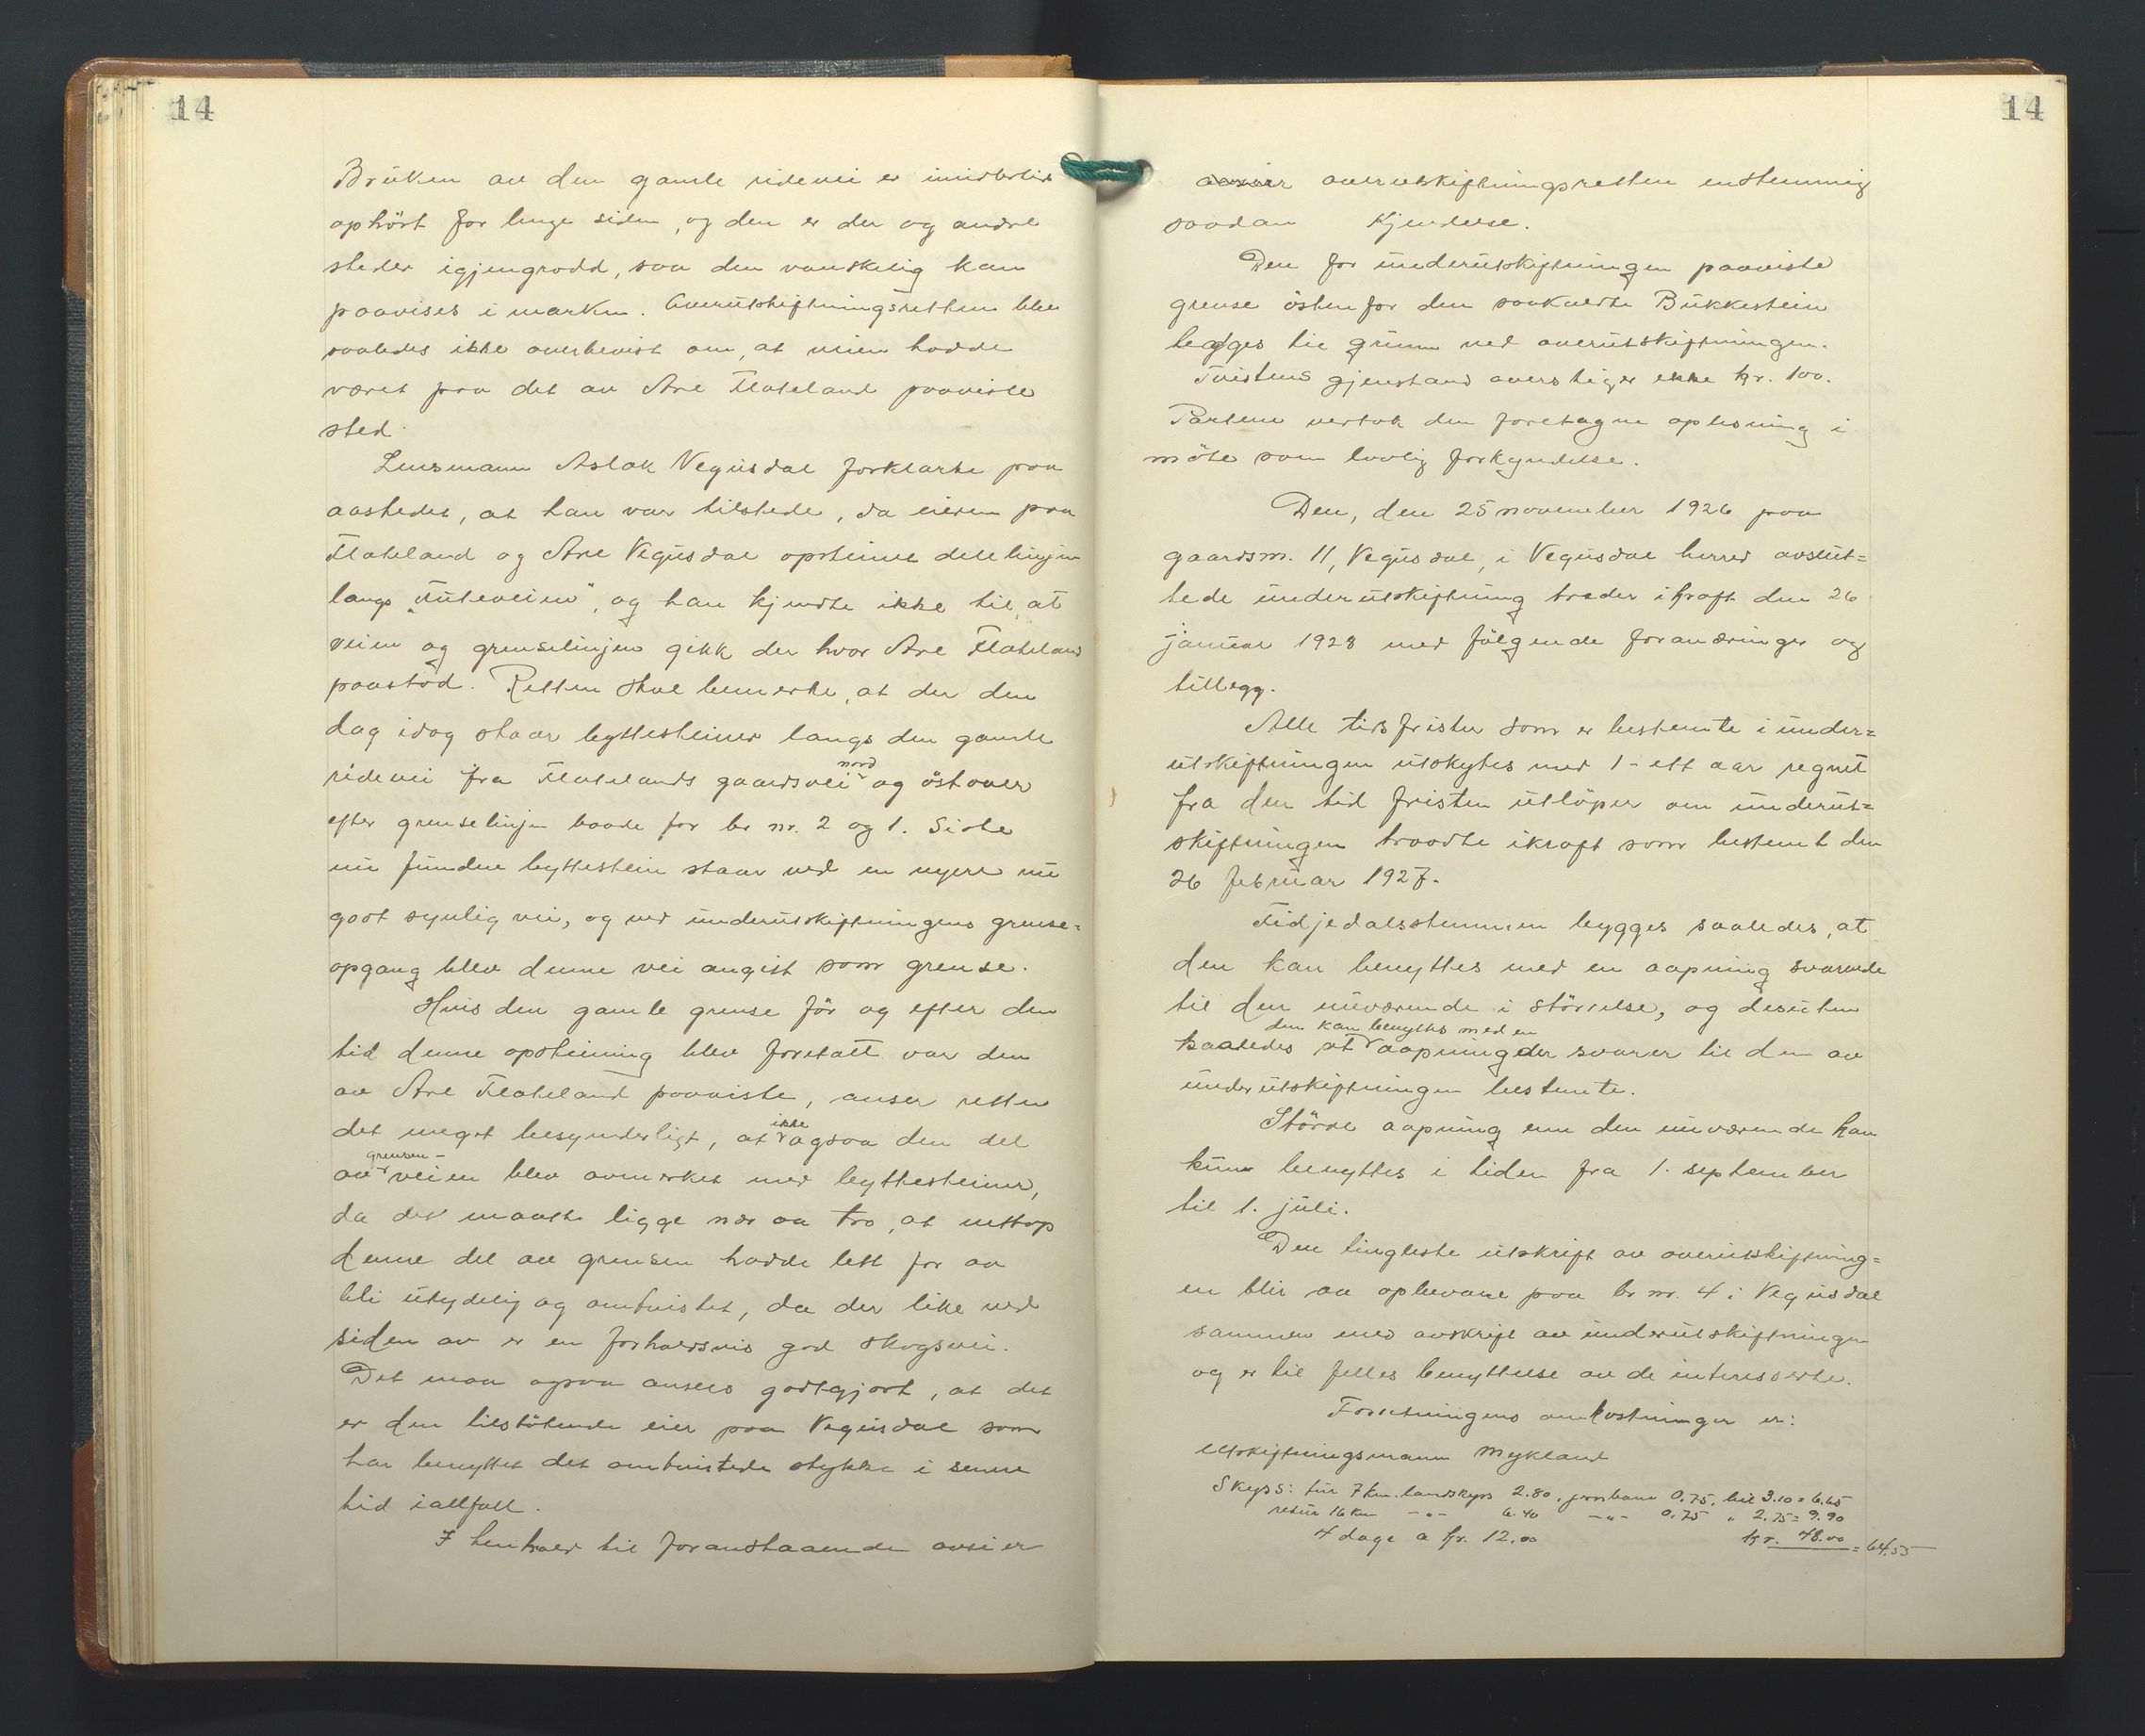 14
Bruken av den gamle ridevei er imidlertid
ophört for lenge siden, og den er der og andre
steder igjengrodd, saa den vanskelig kan
paavises i marken. Overutskiftningsretten blev
saaledes ikke overbevist om, at veien hadde
været paa det av Are Flateland paaviste
sted.
Lensmann Aslak Vegusdal forklarte paa
aastedet, at han var tilstede, da eieren paa
Flateland og Are Vegusdal opsteinet delelinjen
langs „Tuteveien", og han kjendte ikke til, at
veien og grenselinjen gikk der hvor Are Flateland
paastod. Retten skal bemerke, at der den
dag idag staar byttesteiner langs den gamle
ridevei fra Flatelands gaardsvei nord og östover
efter grenselinjen baade for br nr. 2 og 1. Siste
nu fundne byttestein staar ved en nyere nu
godt synlig vei, og ved underutskiftningens grense=
opgang blev denne vei angitt som grense.
Hvis den gamle grense för og efter den
tid denne opsteining blev foretatt var den
av Are Flateland paaviste, anser retten
det meget besynderligt, at ikke ogsaa den del
av grensen - veien blev avmerket med byttesteiner,
da det maatte ligge nær aa tro, at nettop
denne del av grensen hadde lett for aa
bli utydelig og omtvistet, da der like ved
siden av er en forholdsvis god skogsvei.
Det maa ogsaa ansees godtgjort, at det
er den tilstötende eier paa Vegusdal som
har benyttet det omtvistede stykke i senere
tid iallfall.
I henhold til foranstaaende avsier
14
avsier overutskiftningsretten enstemmig
saadan Kjendelse.
Den for underutskiftningen paaviste
grense östenfor den saakaldte Bukkestein
legges til grunn ved overutskiftningen.
Tvistens gjenstand overstiger ikke kr. 100.
Partene vertok den foretagne oplesning i
möte som lovlig forkyndelse.
Den, den 25 november 1926 paa
gaardsnr. 11, Vegusdal, i Vegusdal herred avslut=
tede underutskiftning treder ikraft den 26
januar 1928 med fölgende forandringer og
tillegg.
Alle tidsfrister som er bestemte i under=
utskiftningen utskytes med 1 - ett aar regnet
fra den tid fristen utlöper om underut=
skiftningen traadte ikraft som bestemt den
26 februar 1927.
Tidjedalsstemmen bygges saaledes, at
den kan benyttes med en aapning svarende
til den nuværende i störrelse, og desuten
saaledes at den kan benyttes med en aapning der svarer til den av
underutskiftningen bestemte.
Större aapning enn den nuværende kan
kun benyttes i tiden fra 1. september
til 1. juli.
Den tingleste utskrift av overutskiftning=
en blir aa opbevare paa br nr. 4 i Vegusdal
sammen med avskrift av underutskiftningen
og er til felles benyttelse av de interesserte.
Forretningens omkostninger er:
Utskiftningsmann Mykland
Skyss: tur 7 km. landskyss 2.80, jernbane 0.75, bil 3.10 = 6.65
retur 16 km -"- 6.40 -"- 0.75 " 2.75 = 9.90
4 dage a kr. 12.00 kr. 48.00 = 64.55